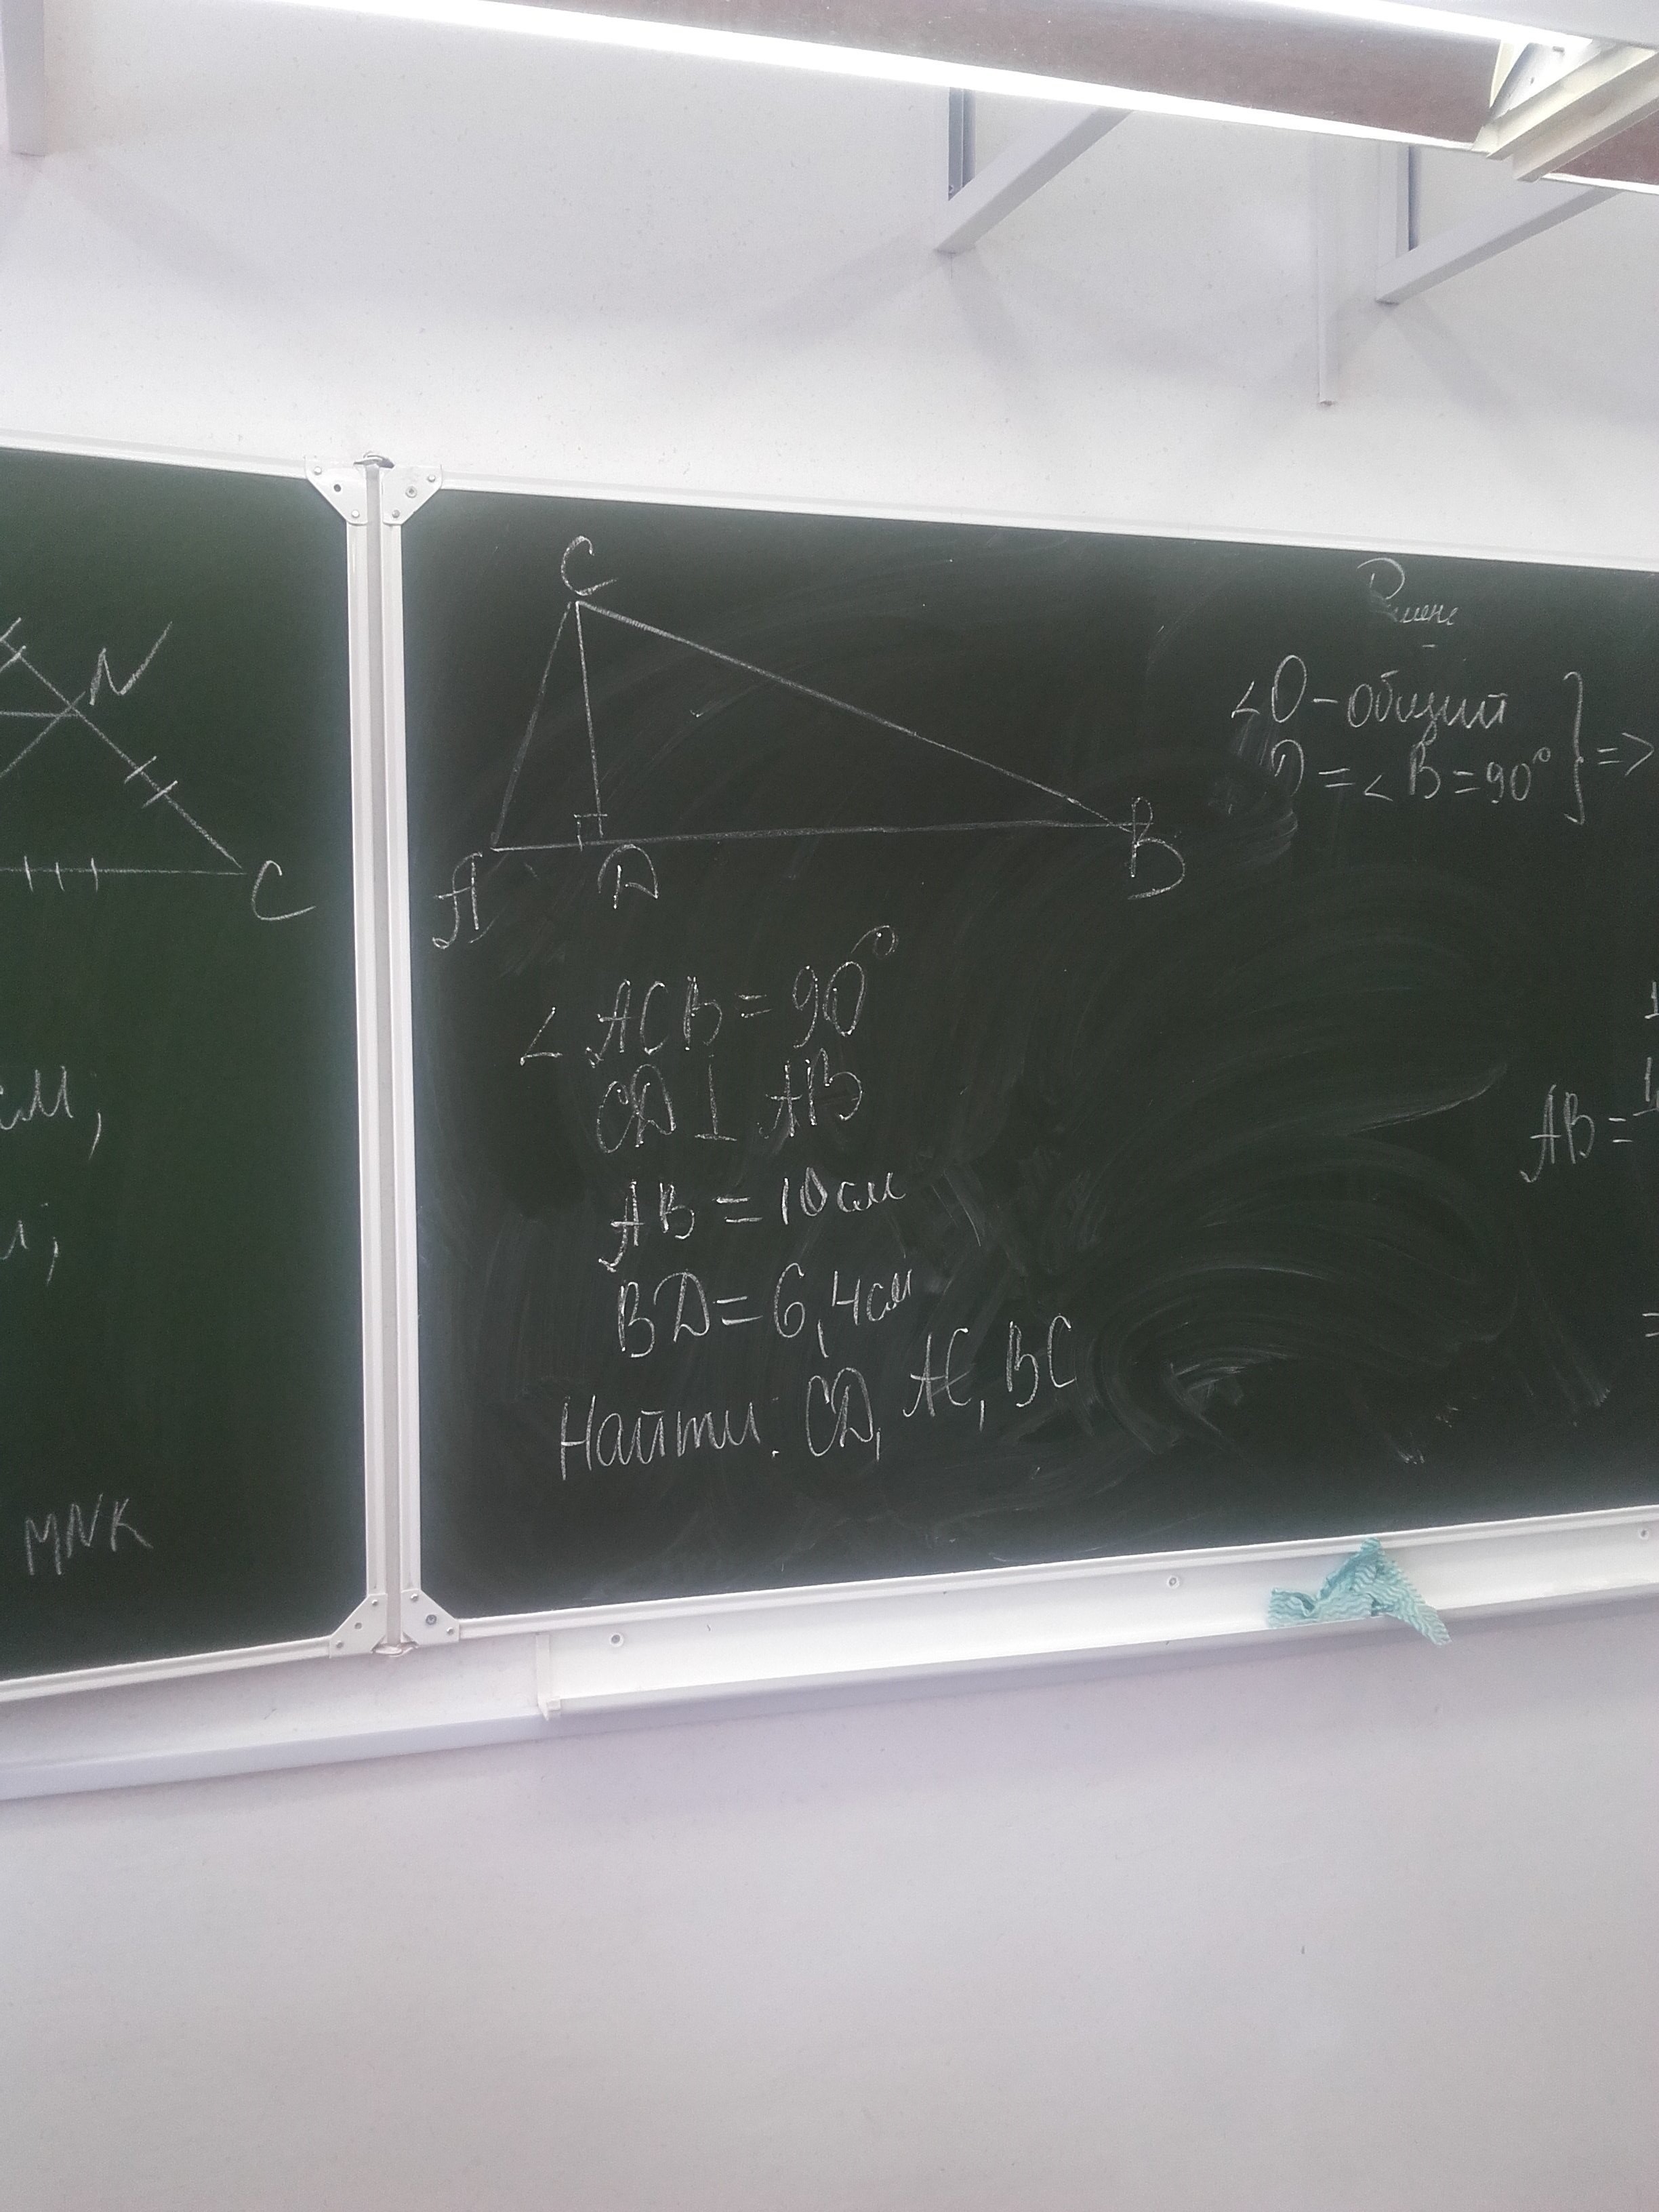 N
C
см;
MNK
C
A
D
B
∠ACB = 90°
CD ⊥ AB
AB = 10 см
BD = 6,4 см
Найти: CD, AC, BC
∠O - общий
= ∠B = 90° } =>
AB =
=